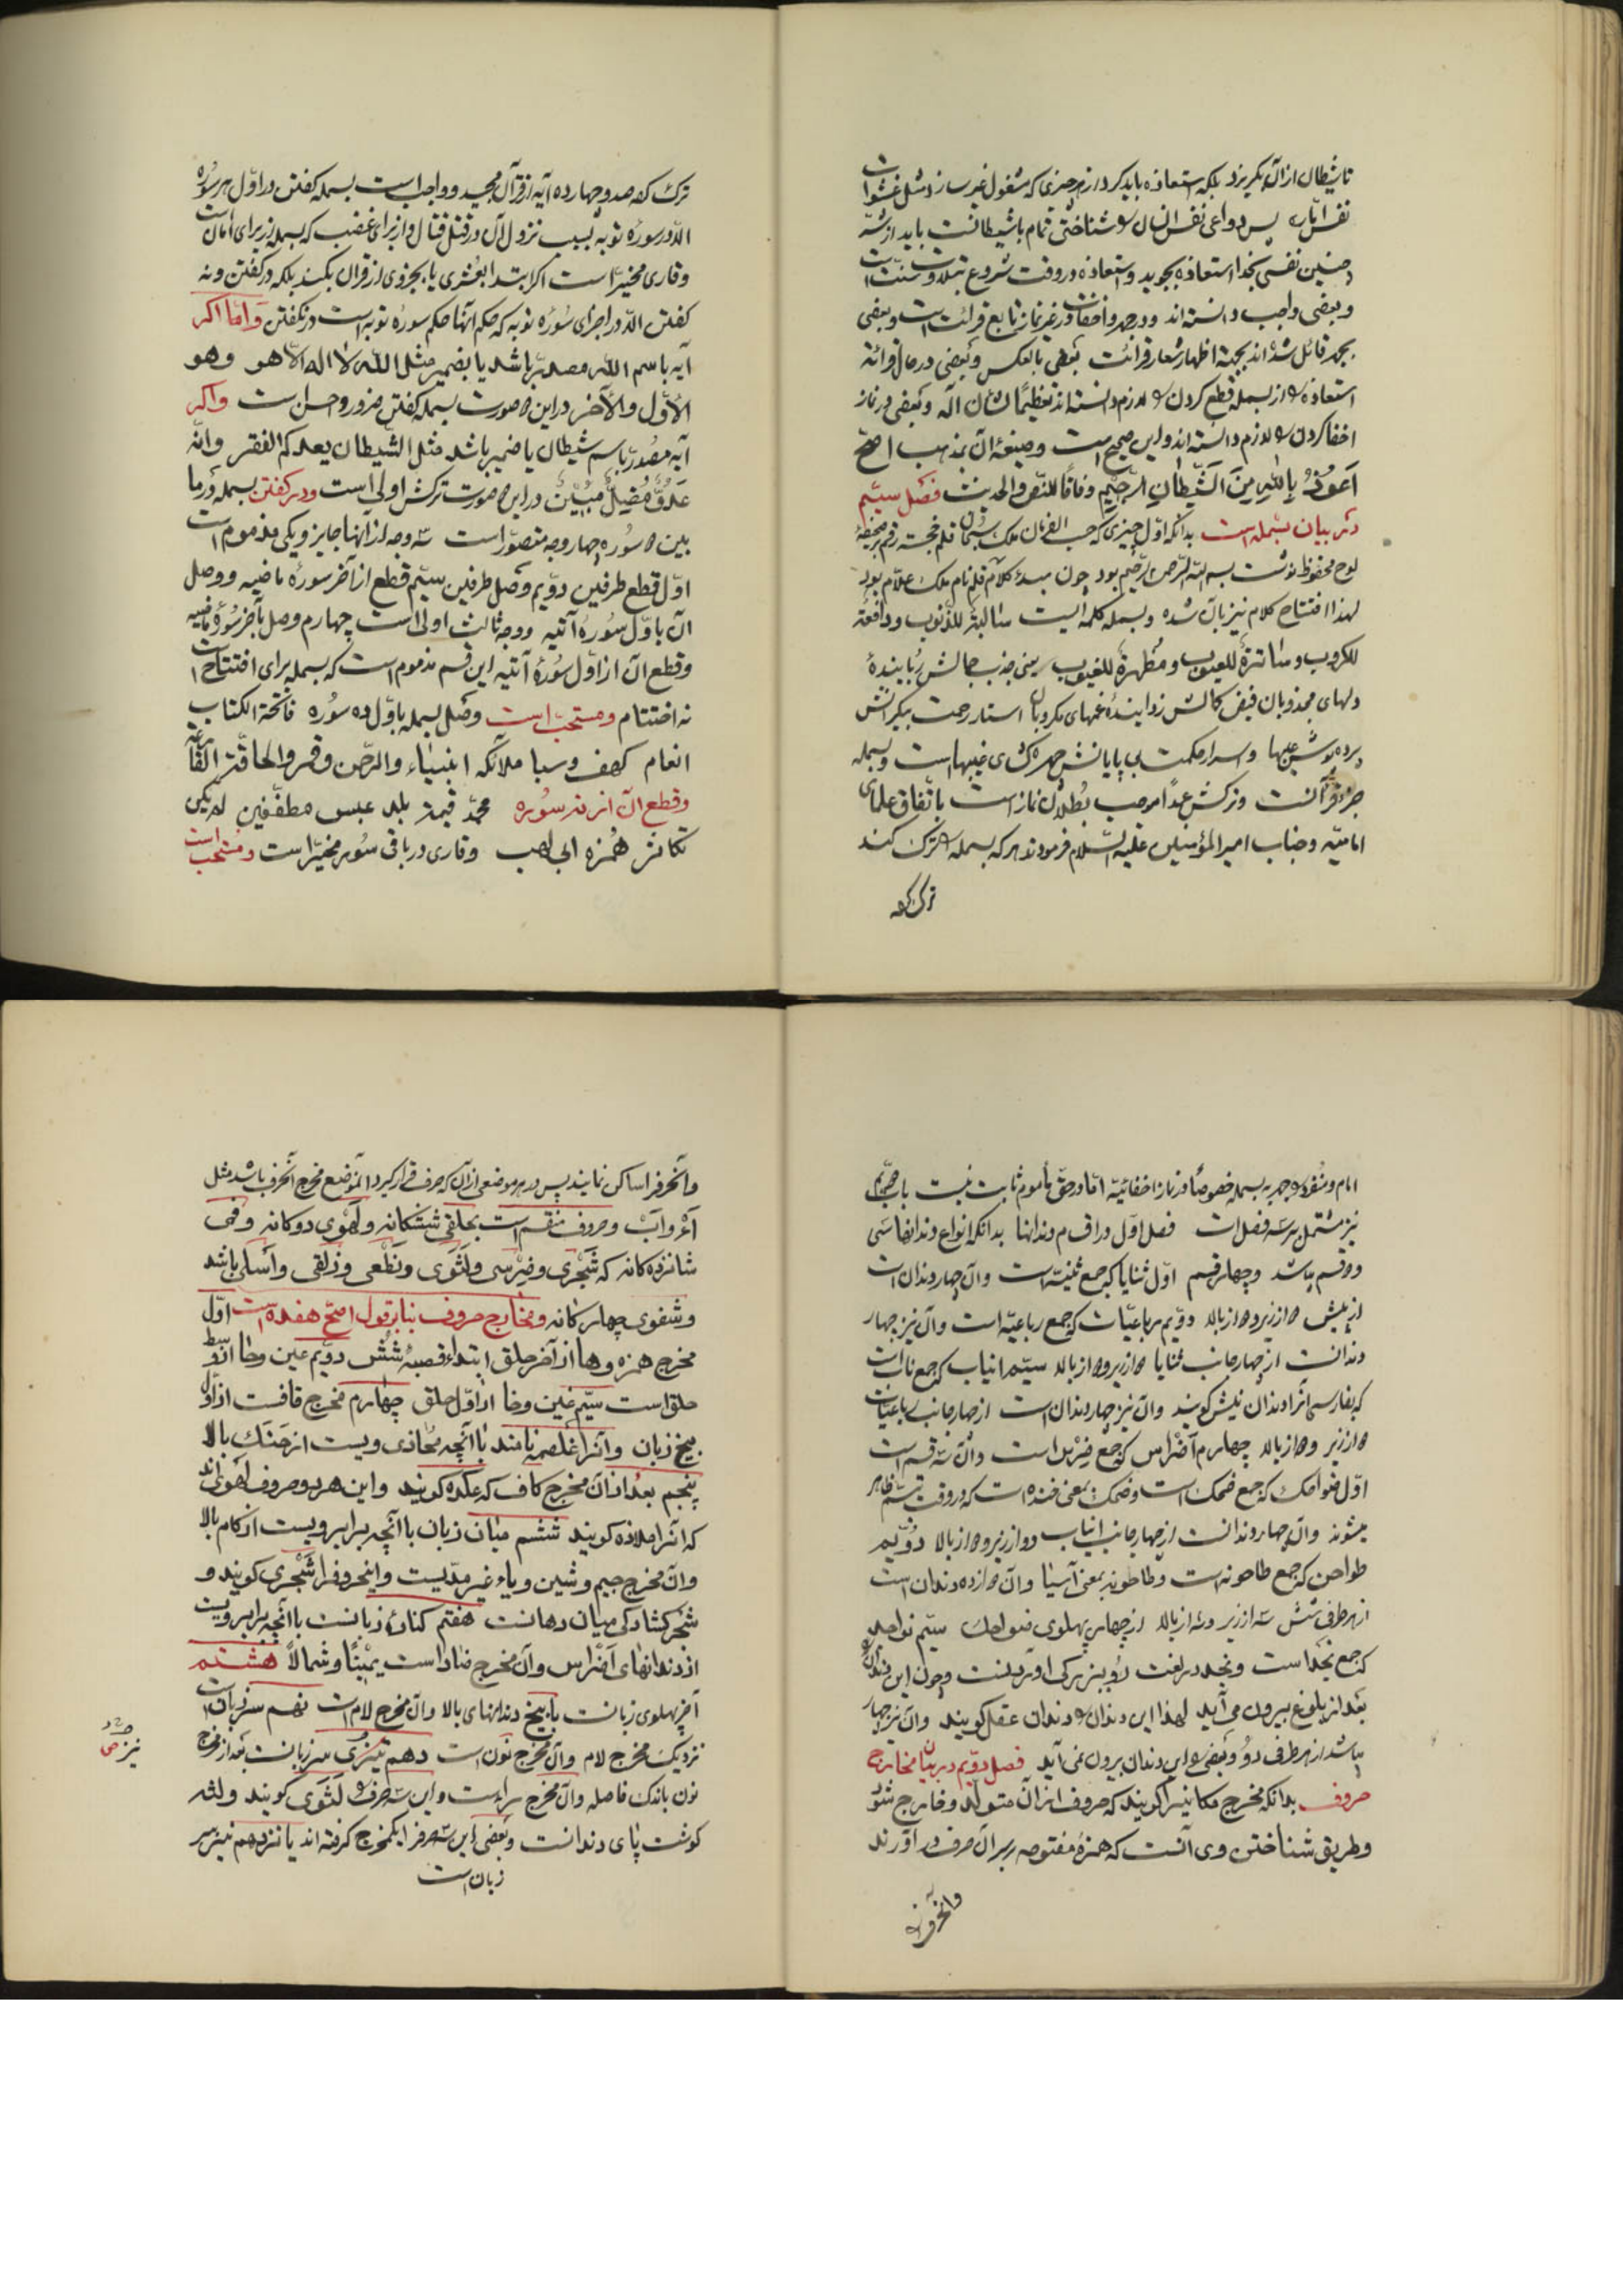 تا شیطان از آن بگریزد بلکه استعاذه باید کرد از هر چیزی که مشغول غیر سازد مثل غشوات
نفس امّاره پس دواعی نفس انسان را شناختن تمام با شیطانست باید از شرّ
چنین نفسی بخدا استعاذه بجوید و استعاذه در وقت شروع بتلاوت سنّت است
و بعضی واجب دانسته اند و در جهر و اخفات در غیر نماز تابع قرائت است و بعضی
بجهر قائل شده اند بجهة اظهار شعار قرائت بعضی بالعکس و بعضی در حال قرائة
استعاذه را از بسمله قطع کردن را لازم دانسته اند تعظیمًا لشأن الله و بعضی در نماز
اخفا کردن را لازم دانسته اند و این صحیح است و صیغهٔ آن بمذهب اصحّ
اَعُوذُ بِاللّٰهِ مِنَ الشَّیْطَانِ الرَّجِیْمِ وفاقًا للنّص والحدیث فصل سیّم
در بیان بسمله است بدانکه اوّل چیزی که حسب الفرمان ملک سبحان قلم خجسته رقم بر صحیفهٔ
لوح محفوظ نوشت بسم الله الرّحمن الرّحیم بود چون مبدء کلام قلم نام ملک علّام بود
لهذا افتتاح کلام نیز بآن شده و بسمله کلمه ایست سالبةٌ للذّنوب و دافعةٌ
للکروب و ساترةٌ للعیوب و مُظهرةٌ للغیوب یعنی جذب جمالش رُبایندهٔ
دلهای مجذوبان فیض کمالش زدایندهٔ غمهای مکروبان استار رحمت بیکرانش
پرده پوش عیبها و اسرار حکمت بی پایانش چهره گشای غیبها است و بسمله
جزو قرآنست و ترکش عمدًا موجب بُطلان نماز است باتّفاق علمای
امامیّه و جناب امیر المؤمنین علیه السّلام فرمودند هر که بسمله را ترک کند
ترک کرده
ترک کرده صد و چهارده آیه از قرآن مجید و واجب است بسمله گفتن در اوّل هر سوره
الّا در سورهٔ توبه بسبب نزول آن در قتل و قتال و از برای غضب که بسمله از برای امان است
و قاری مخیّر است اگر ابتدا بعُشری یا بجزوی از قرآن بکند بلکه در گفتن و نه
گفتن الّا در اجزای سُورهٔ توبه که حکم آنها حکم سورهٔ توبه است در نگفتن و امّا اگر
آیه باسم الله مصدّر باشد یا بضمیر مثل الله لا اله الّا هو و هو
الأوّل والآخر در این صورت بسمله گفتن ضرور و احسن است و اگر
آیه مُصدّر باسم شیطان یا ضمیر باشد مثل الشّیطان یعدکم الفقر و انّه
عَدُوٌّ مُضِلٌّ مُبِیْنٌ در این صورت ترکش اولی است و در گفتن بسمله در ما
بین دو سُوره چهار وجه متصوّر است سه وجه از آنها جایز و یکی مذموم است
اوّل قطع طرفین دوّیم وصل طرفین سیّم قطع از آخر سورهٔ ماضیه و وصل
آن باوّل سُورهٔ آتیه و وجه ثالث اولی است چهارم وصل بآخر سُورهٔ ماضیه
و قطع آن از اوّل سُورهٔ آتیه این قسم مذموم است که بسمله برای افتتاح است
نه اختتام و مستحبّ است وصل بسمله باوّل ده سُوره فاتحة الکتاب
انعام کهف و سبا ملائکه انبیاء و الرّحمن و قمر و الحاقّة القارعة
و قطع آن از نه سُوره محمّد قیمة بلد عبس مطفّفین لم یکن
تکاثر هُمزه ابی لهب و قاری در باقی سُور مخیّر است و مُستحبّ است
امام و منفرد را جهر به بسمله خصوصًا در نماز اخفائیّه امّا در حقّ مأموم ثابت نیست باب دوّیم
نیز مشتمل بر سه فصل است فصل اوّل در اقسام دندانها بدانکه انواع دندانها سی
و دو قسم باشد و چهار قسم اوّل ثنایا که جمع ثنیّه است و آن چهار دندان است
از پیش دو از زیر و دو از بالا دوّیم رباعیّات که جمع رباعیّه است و آن نیز چهار
دندانست از چهار جانب ثنایا دو از زیر و دو از بالا سیّم انیاب که جمع ناب است
که بفارسی آنرا دندان نیش گویند و آن نیز چهار دندان است از چهار جانب رباعیات
دو از زیر و دو از بالا چهارم اَضْراس که جمع ضِرْس است و آن سه قسم است
اوّل ضواحک که جمع ضحک است و ضحک بمعنی خنده است که در وقت تبسّم ظاهر
میشوند و آن چهار دندانست از چهار جانب انیاب دو از زیر و دو از بالا دوّیم
طواحن که جمع طاحونه است و طاحونه بمعنی آسیا و آن دوازده دندان است
از هر طرفی شش سه از زیر و سه از بالا از چهار پهلوی ضواحک سیّم نواجد
که جمع نجد است و نجد در لغت رُوییز بزرگی آوردنست و چون این دندان را
بعد از بلوغ بیرون می آید لهذا این دندان را دندان عقل گویند و آن نیز چهار
باشد از هر طرفی دو و بعضی را این دندان بیرون نمی آید فصل دوّیم در بیان مخارج
حروف بدانکه مخرج مکانیرا گویند که حروف از آن متولّد و خارج شود
و طریق شناختن وی آنست که همزهٔ مفتوحه بر سر آن حرف در آورند
و آنحرفرا
و آنحرفرا ساکن نمایند پس در هر موضعی از آن که حرف قرار گیرد آنموضع مخرج آنحرف باشد مثل
اَعْ و اَبْ و حروف منقسم است بحلقی ششگانه و لَهَوی دوگانه و فمی
شانزده گانه که شَجْری و ضِرْسی و لَثَوی و نِطْعی و ذلقی و اَسَلی باشد
و شفوی چهار گانه و مخارج حروف بنابر قول اصحّ هفده است اوّل
مخرج همزه و ها از آخر حلق ابتداء قصبهٔ شُشْ دوّیم عین و حا از وسط
حلق است سیّم غین و خا از اوّل حلق چهارم مخرج قافست از اوّل
بیخ زبان و آنرا غلصمه نامند با آنچه محاذی ویست از حَنَک بالا
پنجم بعد از آن مخرج کاف که عکده گویند و این هر دو حروف لَهَوی اند
که آنرا ملاذه گویند ششم میان زبان با آنچه برابر ویست از کام بالا
و آن مخرج جیم و شین و یاء غیر مدّیست و اینحروفرا شَجْری گویند و
شَجْر گشادگی میان دهانست هفتم کنارهٔ زبانست با آنچه برابر ویست
از دندانهای اَضْراس و آن مخرج ضاد است یمینًا و شمالًا هشتم
آخر پهلوی زبانست با بیخ دندانهای بالا و آن مخرج لام است نهم سر زبان است
نزدیک مخرج لام و آن مخرج نون است دهم تیزی سر زبانست بعد از مخرج
نون باندک فاصله و آن مخرج راء است و این سه حرف را لَثَوی گویند و لثه
گوشت پای دندانست و بعضی این سه حرفرا یکمخرج گرفته اند یانزدهم نیز سر
زبان است